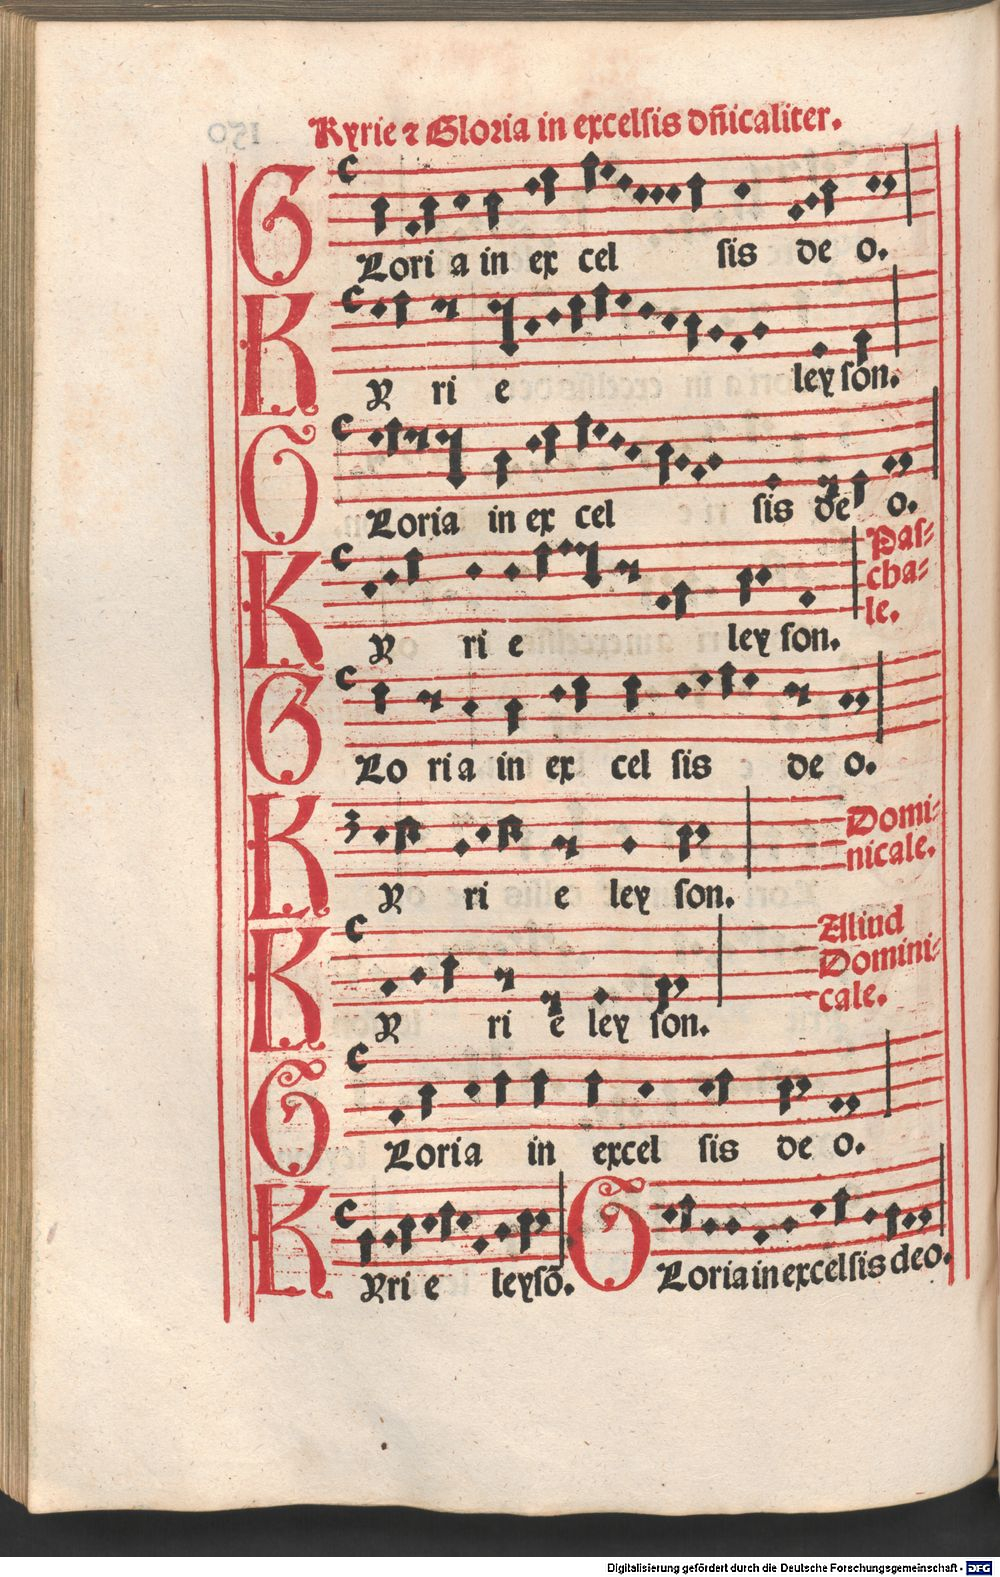 Kyrie ⁊ Gloria in excelsis dñicaliter.
GLori a in ex cel sis de o.
KY ri e ley son.
GLoria in ex cel sis de o.
KY ri e ley son.
Pas-
cha-
le.
GLo ri a in ex cel sis de o.
KY ri e ley son.
Domi-
nicale.
KY ri e ley son.
Aliud
Domini-
cale.
GLoria in excel sis de o.
KYri e leysō. GLoria in excelsis deo.
Digitalisierung gefördert durch die Deutsche Forschungsgemeinschaft - DFG